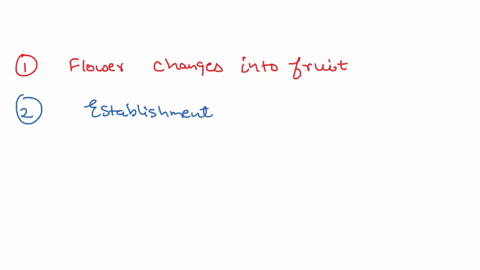 ① Flower changes into fruit
② Establishment